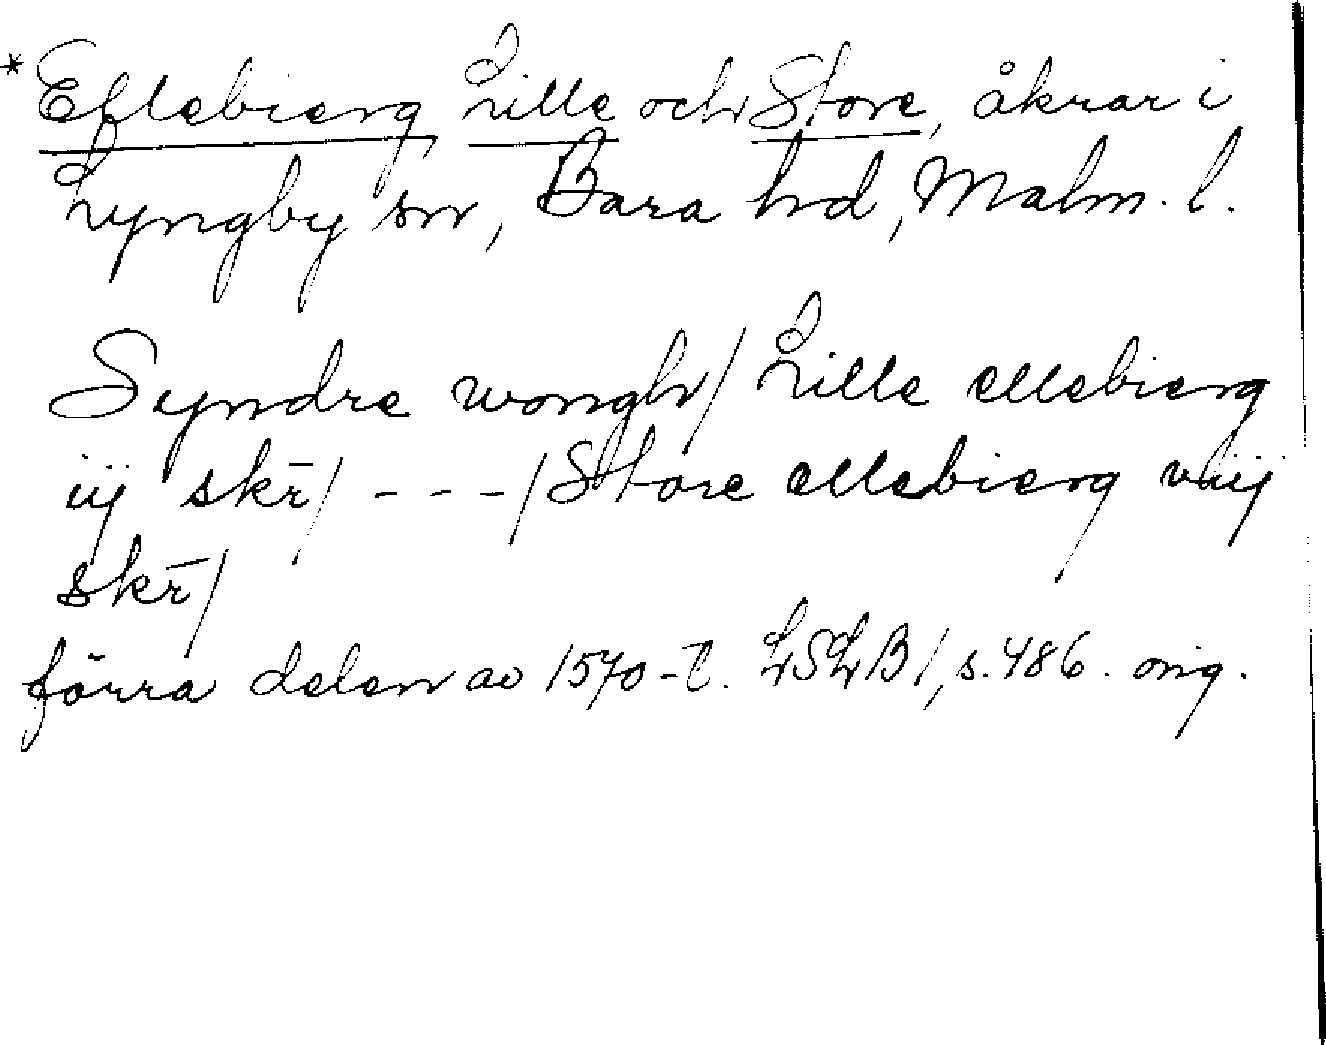 * Ellebierg Lille och Store, åkrar i
Lyngby sn, Bara hd, Malm. l.
Syndre wongh/ Lille ellebierg
iij skr̄/ - - - / Store ellebierg viij
skr̄/
förra delen av 1570-t. LSLB 1, s. 486. orig.